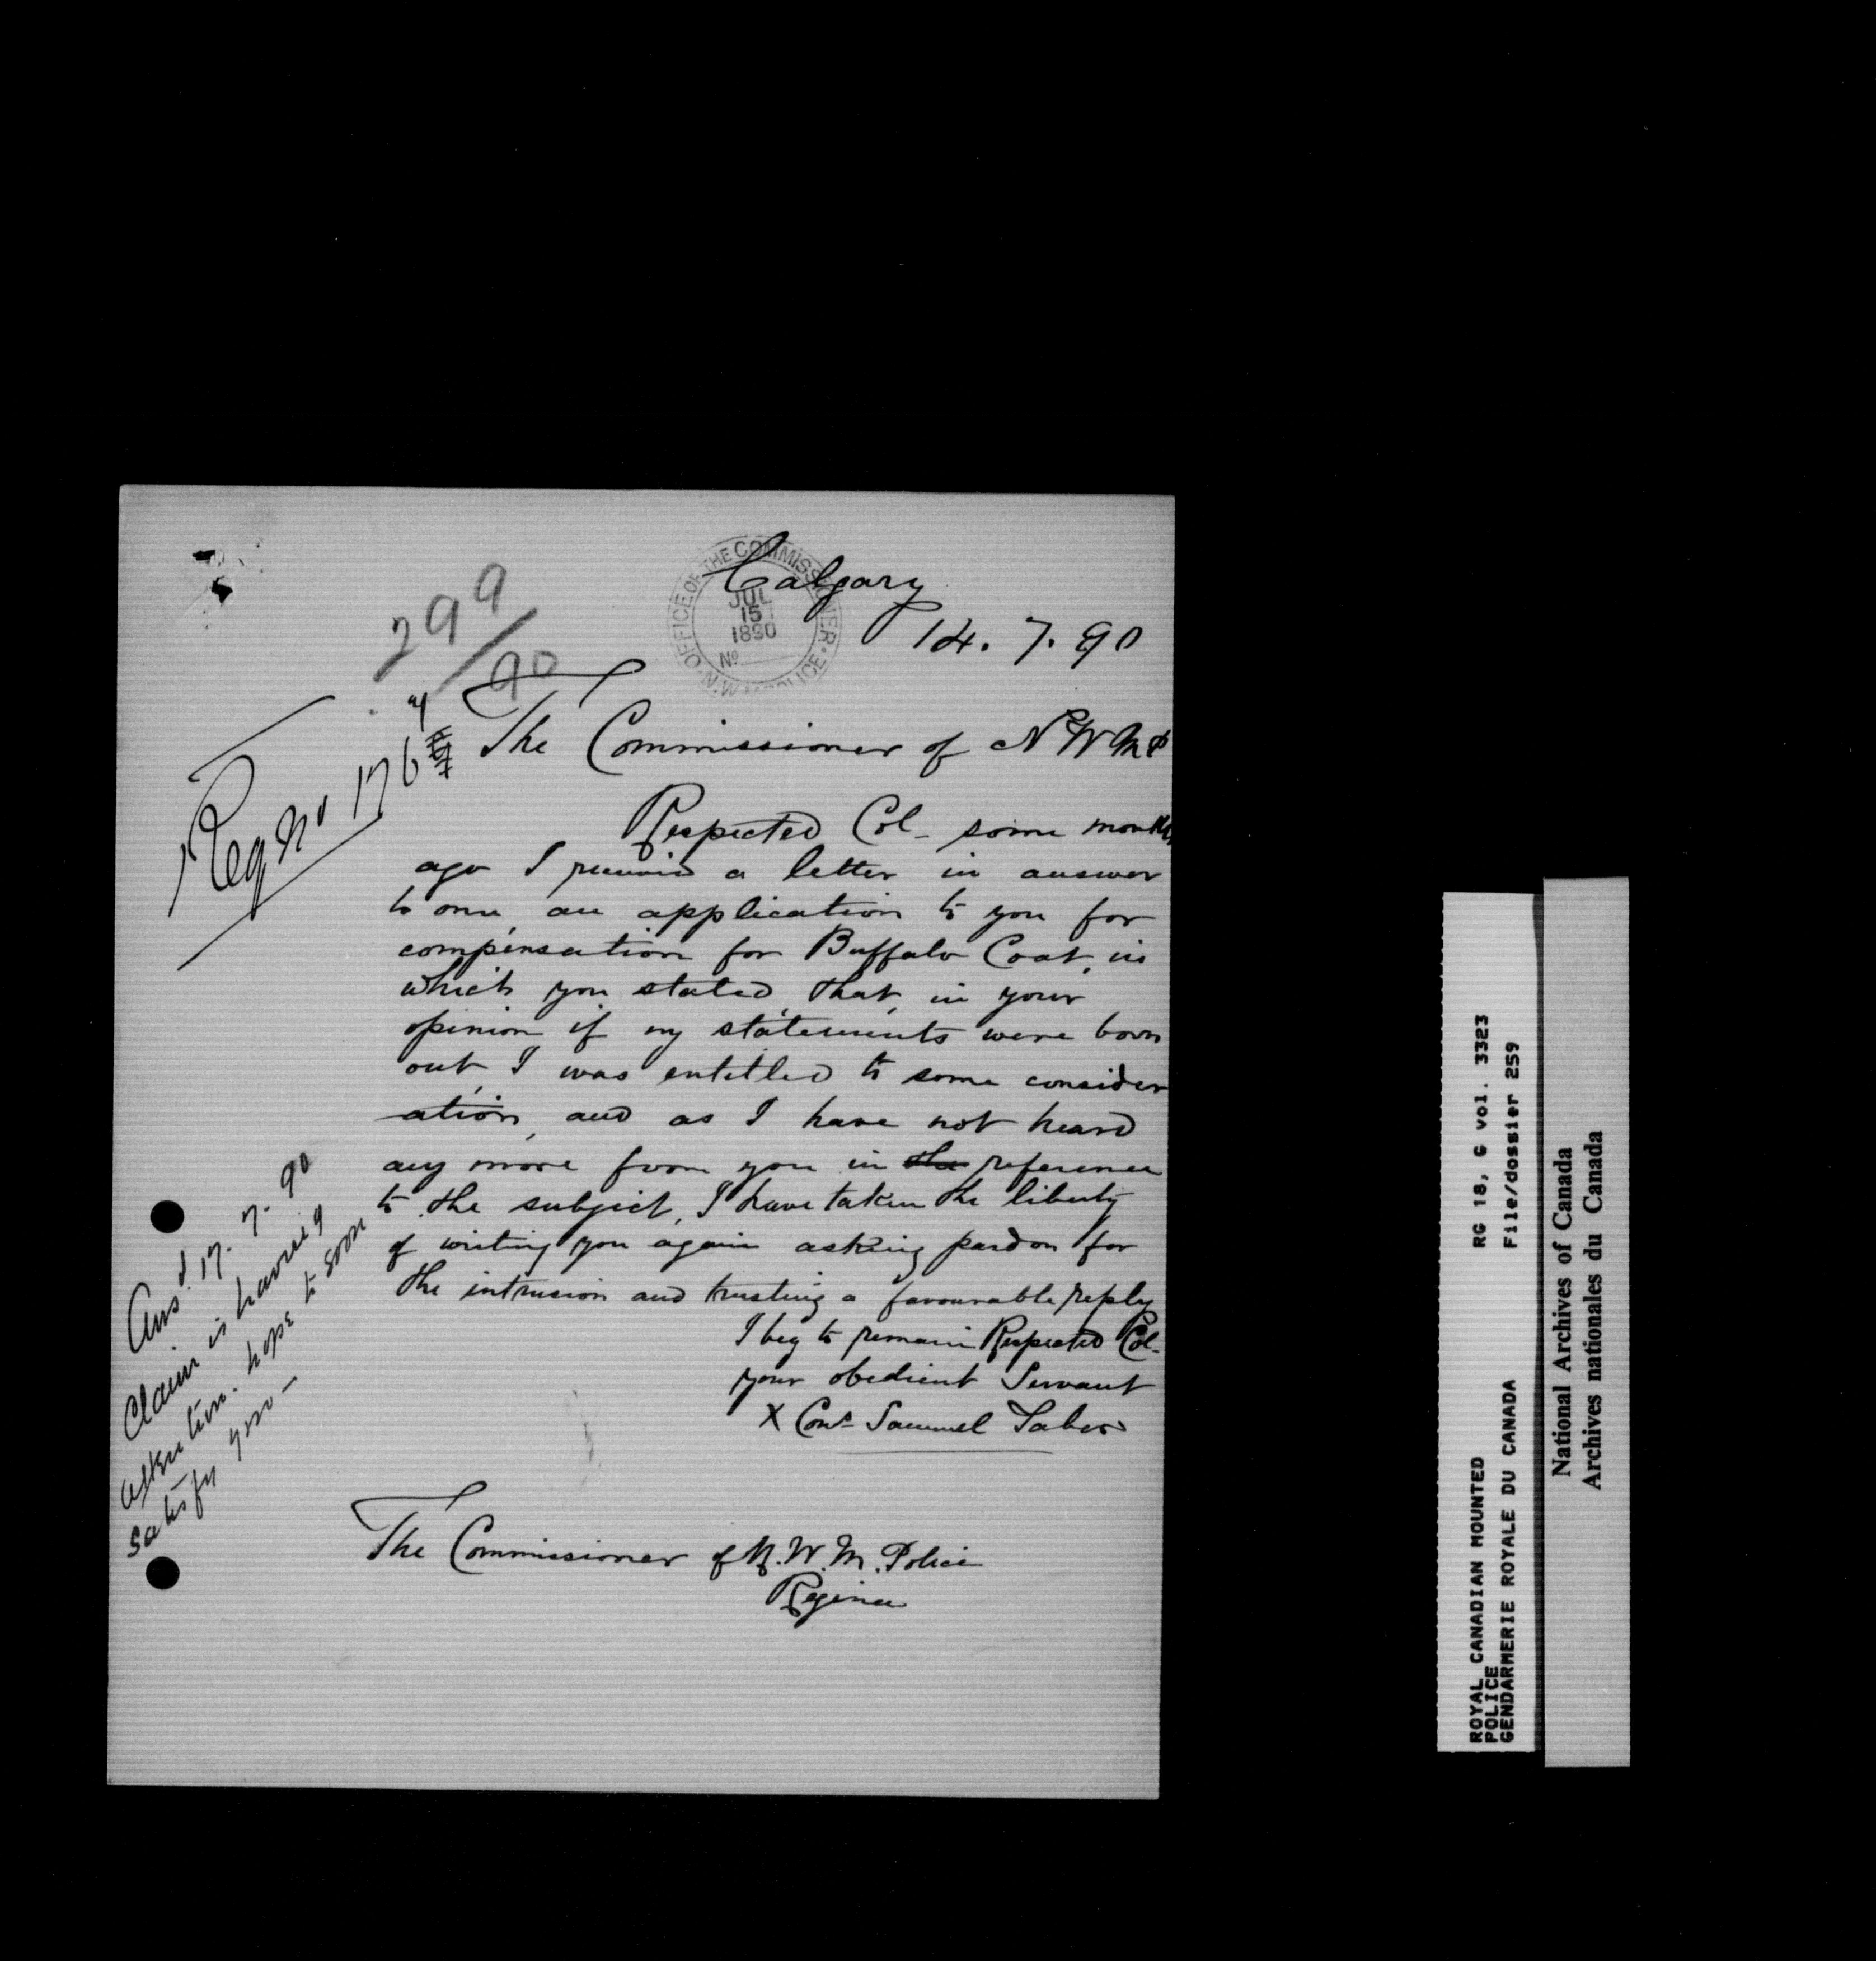 OFFICE OF THE COMMISSIONER
JUL
15
1890
No
N.W.M. POLICE
Calgary
14. 7. 90
299/90
Reg No 176
The Commissioner of N W M P
Respected Col - some months
ago I received a letter in answer
to one, an application to you for
compensation for Buffalo Coat, in
which you stated, that, in your
opinion if my statements were born
out, I was entitled to some consider
ation, and as I have not heard
any more from you in the reference
to the subject, I have taken the liberty
of writing you again asking pardon for
the intrusion and trusting a favourable reply
I beg to remain Respected Col-
your obedient Servant
X Cons. Samuel Taber
The Commissioner of N. W. M. Police
Regina
Ansd. 17. 7. 90
Claim is having
attention. hope to soon
satisfy you -
ROYAL CANADIAN MOUNTED
POLICE
GENDARMERIE ROYALE DU CANADA
RG 18, G vol. 3323
File/dossier 259
National Archives of Canada
Archives nationales du Canada